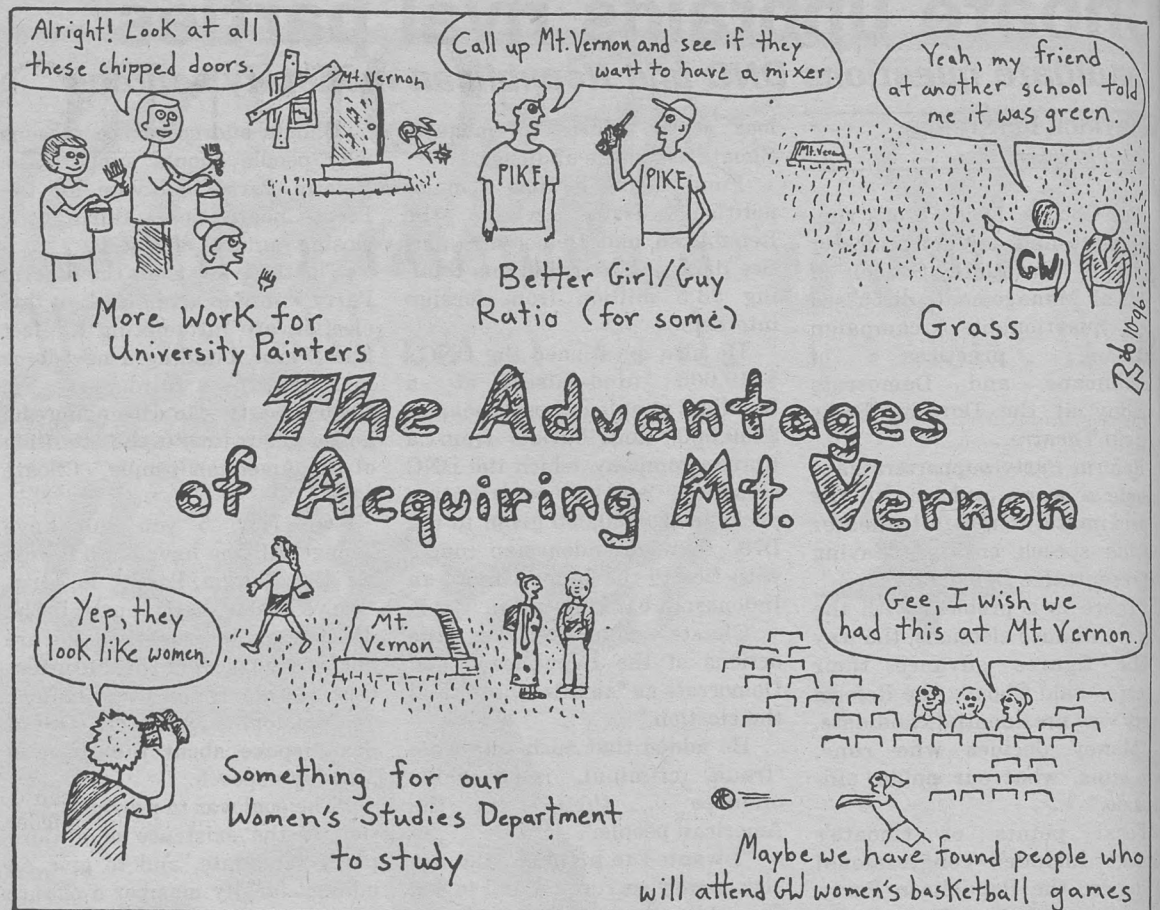 Alright! Look at all
these chipped doors.
Mt. Vernon
More Work for
University Painters
Call up Mt. Vernon and see if they
want to have a mixer.
PIKE
PIKE
Better Girl/Guy
Ratio (for some)
Yeah, my friend
at another school told
me it was green.
Mt. Vernon
GW
Grass
Rob 10-96
The Advantages
of Acquiring Mt. Vernon
Yep, they
look like women.
Mt.
Vernon
Something for our
Women's Studies Department
to study
Gee, I wish we
had this at Mt. Vernon.
Maybe we have found people who
will attend GW women's basketball games